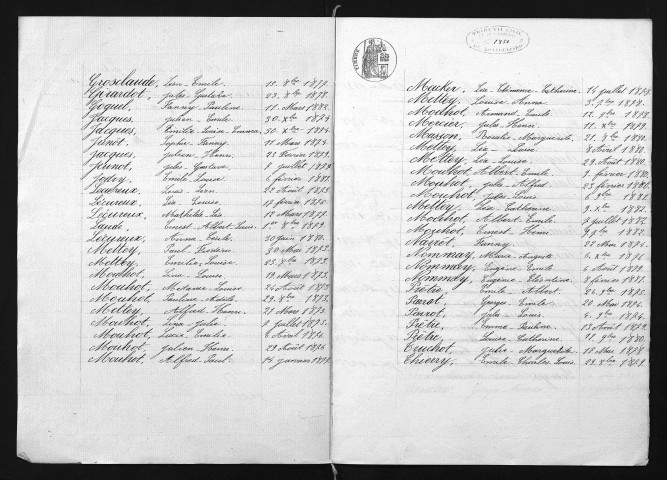 Groselaude, Léon Emile. 11. 8bre 1877.
Girardot, Jules Gustave. 23. Xbre 1878.
Goguel, Fanny Pauline. 11 Mars 1882.
Jacques, Julien Emile. 30 Xbre 1874.
Jacques, Emilie Louise 30 Xbre 1874.
Junot, Sophie Fanny. 11 Mars 1874.
Jacques, Julien Henri. 25 Février 1879.
Junot, Jules Gustave. 8 juillet 1879.
Emile Louise. 6 février 1881.
Louis Léon. 22 Août 1875.
Lécureux, Louise. 17 février 1876.
Lécureux, Mathilde 12 Mars 1878.
Laude, Ernest Albert Louis. 1er 8bre 1879.
Lécureux, Anna Cécile. 30 juin 1880.
Mettey, Paul Frédéric 30 Mai 1873.
Mettey, Emilie Louise. 15 Xbre 1873.
Mouhot, Louise. 19 Mars 1873.
Mouhot, Mélanie Louise 24 Août 1873.
Mouhot, Pauline Adèle. 29. Xbre 1873.
Mettey, Alfred Henri. 21 Mars 1875.
Mouhot, Lina Julie. 9 juillet 1875.
Mouhot, Lucie Emilie. 6 Avril 1876.
Mouhot, Julien Henri. 29 Août 1876.
Mouhot, Alfred Paul. 14 janvier 1877.
TRIBUNAL CIVIL
Catherine. 14 juillet 1877.
Mettey, Louise Anna. 3. 7bre 1878.
Mouhot, Armand Emile. 12. 8bre 1878.
Mercier, Jules Henri. 11. Xbre 1879.
Masson, Rosalie Marguerite. 21. 9bre 1880.
Mettey, Louise. 8 Avril 1880.
Mettey, Louise. 29 Août 1880.
Mouhot, Albert Emile. 9. février 1880.
Mouhot, Jules Alfred. 23 février 1881.
Mouhot, Jules Louis. 6 9bre 1881.
Mettey, Catherine. 9. Xbre 1882.
Mouhot, Albert Emile. 9 juillet 1882.
Mouhot, Ernest Henri. 9bre 1882.
Fanny. 21 Mai 1874.
Nommay, Marie Auguste. 6. Xbre 1876.
Nommay, Eugène Emile. 4 Août 1879.
Nommay, Eugénie Clémentine. 8 février 1881.
Prêtre, Emile Albert. 24. 9bre 1875.
Parrot, Georges Emile. 20 Mai 1876.
Parrot, Jules Louis. 4. 9bre 1876.
Prêtre, Emma Pauline. 15 Août 1879.
Prêtre, Louise Catherine. 11. 9bre 1880.
Julie Marguerite. 18 Mai 1878.
Thierry, Emile Charles Louis. 29. 8bre 1879.